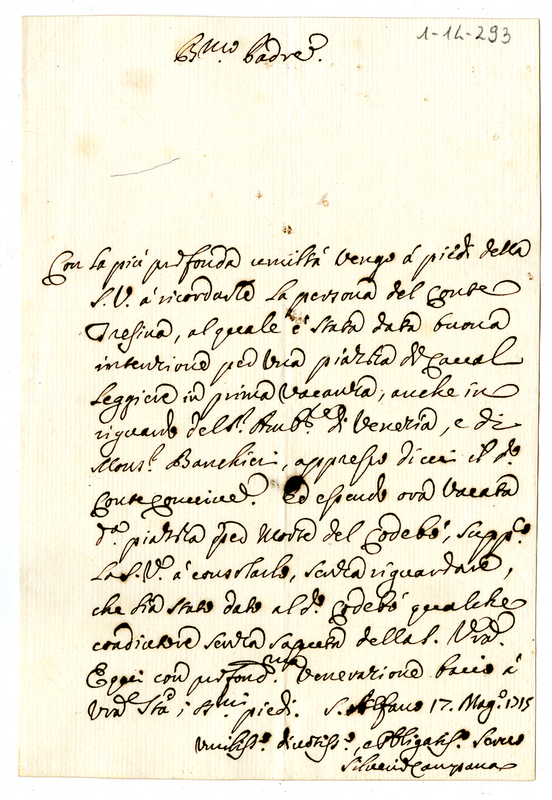 1-14-293
B.mo Padre.
Con la più profonda umiltà vengo à piedi della
S.V. à ricordarle la persona del Conte
Tresina, al quale è stata data buona
intenzione per una piazza di Caval
Leggiere in prima vacanza, anche in
riguardo del S.r Amb.re di Venezia, e di
Mons.r Banchieri, appresso di cui il d.o
Conte convive. Ed essendo ora vacata
d.a piazza per morte del Codebò, supp.co
La S.V. à consolarlo, senza riguardare,
che sia stato dato al d.o Codebò qualche
coadiutore senza saputa della S. V.ra
E qui con profond.ma venerazione bacio à
V.ra S.tà i SS.mi piedi. S. Stefano 17. Mag.o 1715
Umiliss.o divotiss.o, e obbligatiss.o Servo
Campana